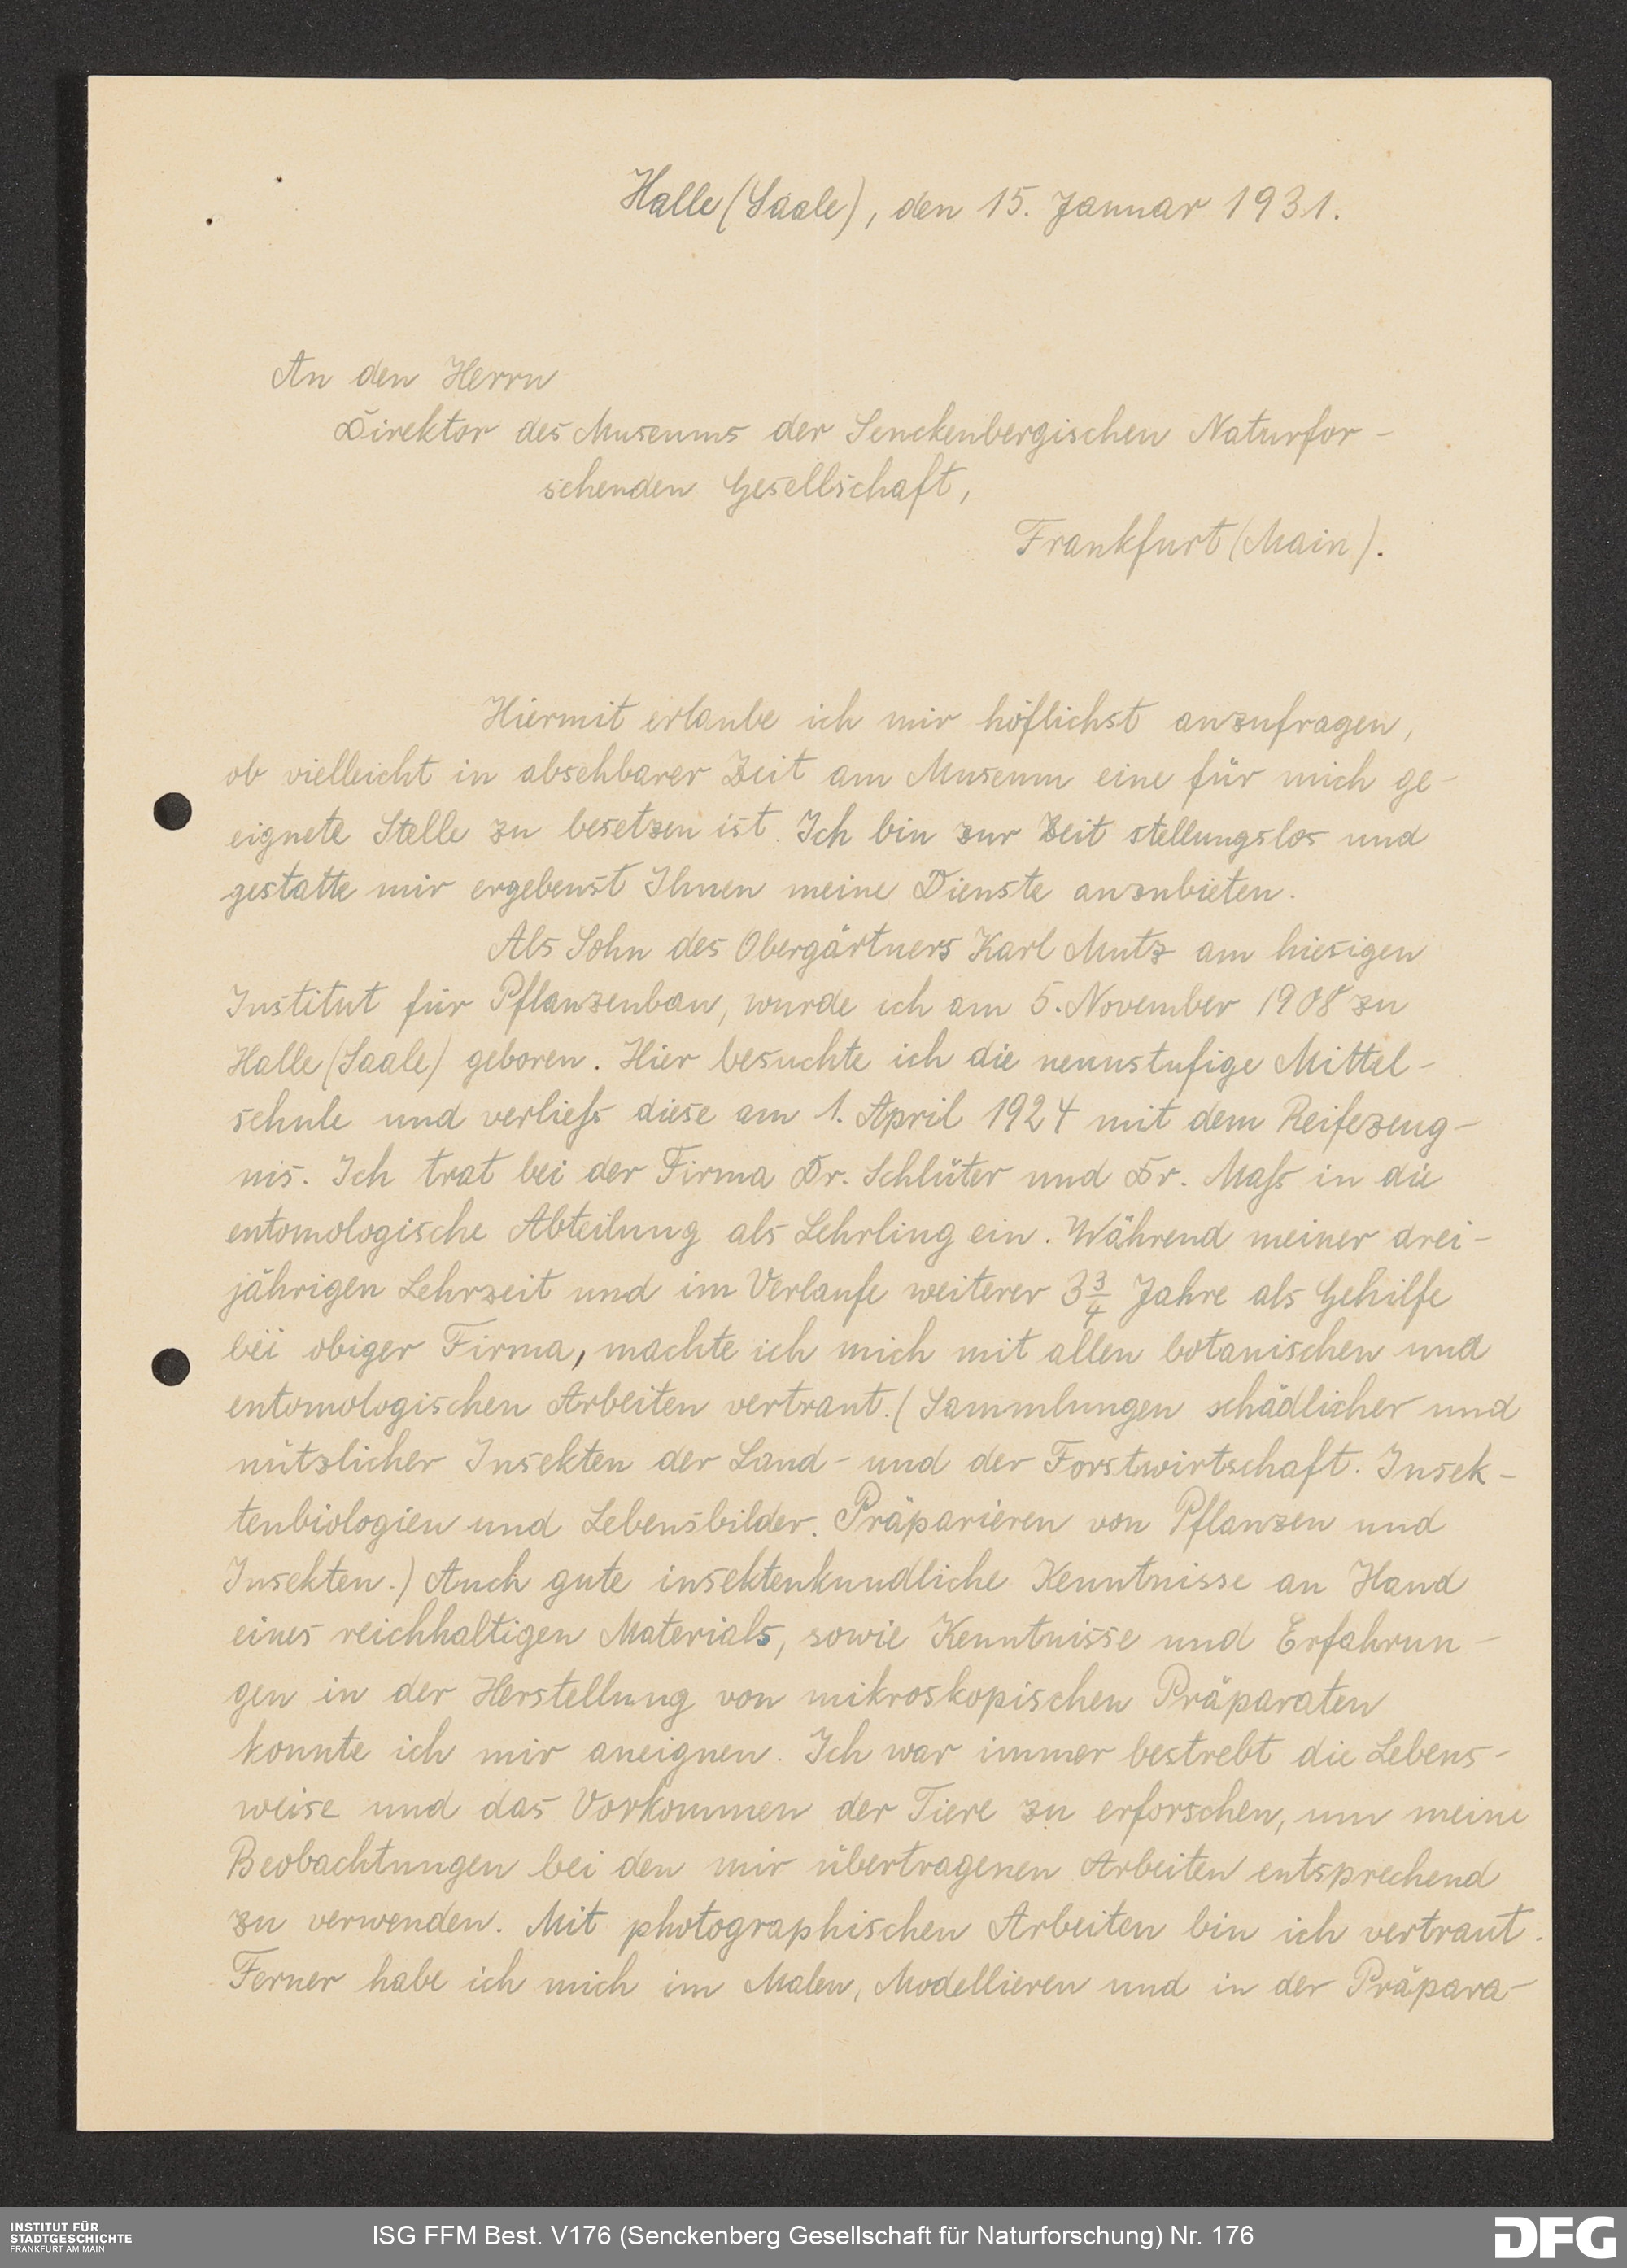 Halle (Saale), den 15. Januar 1931.
An den Herrn
Direktor des Museums der Senckenbergischen Naturfor-
schenden Gesellschaft,
Frankfurt (Main).
Hiermit erlaube ich mir höflichst anzufragen,
ob vielleicht in absehbarer Zeit am Museum eine für mich ge-
eignete Stelle zu besetzen ist. Ich bin zur Zeit stellungslos und
gestatte mir ergebenst Ihnen meine Dienste anzubieten.
Als Sohn des Obergärtners Karl Mutz am hiesigen
Institut für Pflanzenbau, wurde ich am 5. November 1908 zu
Halle (Saale) geboren. Hier besuchte ich die neunstufige Mittel-
schule und verließ diese am 1. April 1924 mit dem Reifezeug-
nis. Ich trat bei der Firma Dr. Schlüter und Dr. Maß in die
entomologische Abteilung als Lehrling ein. Während meiner drei-
jährigen Lehrzeit und im Verlaufe weiterer 3 3/4 Jahre als Gehilfe
bei obiger Firma, machte ich mich mit allen botanischen und
entomologischen Arbeiten vertraut. (Sammlungen schädlicher und
nützlicher Insekten der Land- und der Forstwirtschaft. Insek-
tenbiologien und Lebensbilder. Präparieren von Pflanzen und
Insekten.) Auch gute insektenkundliche Kenntnisse an Hand
eines reichhaltigen Materials, sowie Kenntnisse und Erfahrun-
gen in der Herstellung von mikroskopischen Präparaten
konnte ich mir aneignen. Ich war immer bestrebt die Lebens-
weise und das Vorkommen der Tiere zu erforschen, um meine
Beobachtungen bei den mir übertragenen Arbeiten entsprechend
zu verwenden. Mit photographischen Arbeiten bin ich vertraut.
Ferner habe ich mich im Malen, Modellieren und in der Präpara-
INSTITUT FÜR
STADTGESCHICHTE
FRANKFURT AM MAIN
ISG FFM Best. V176 (Senckenberg Gesellschaft für Naturforschung) Nr. 176
DFG